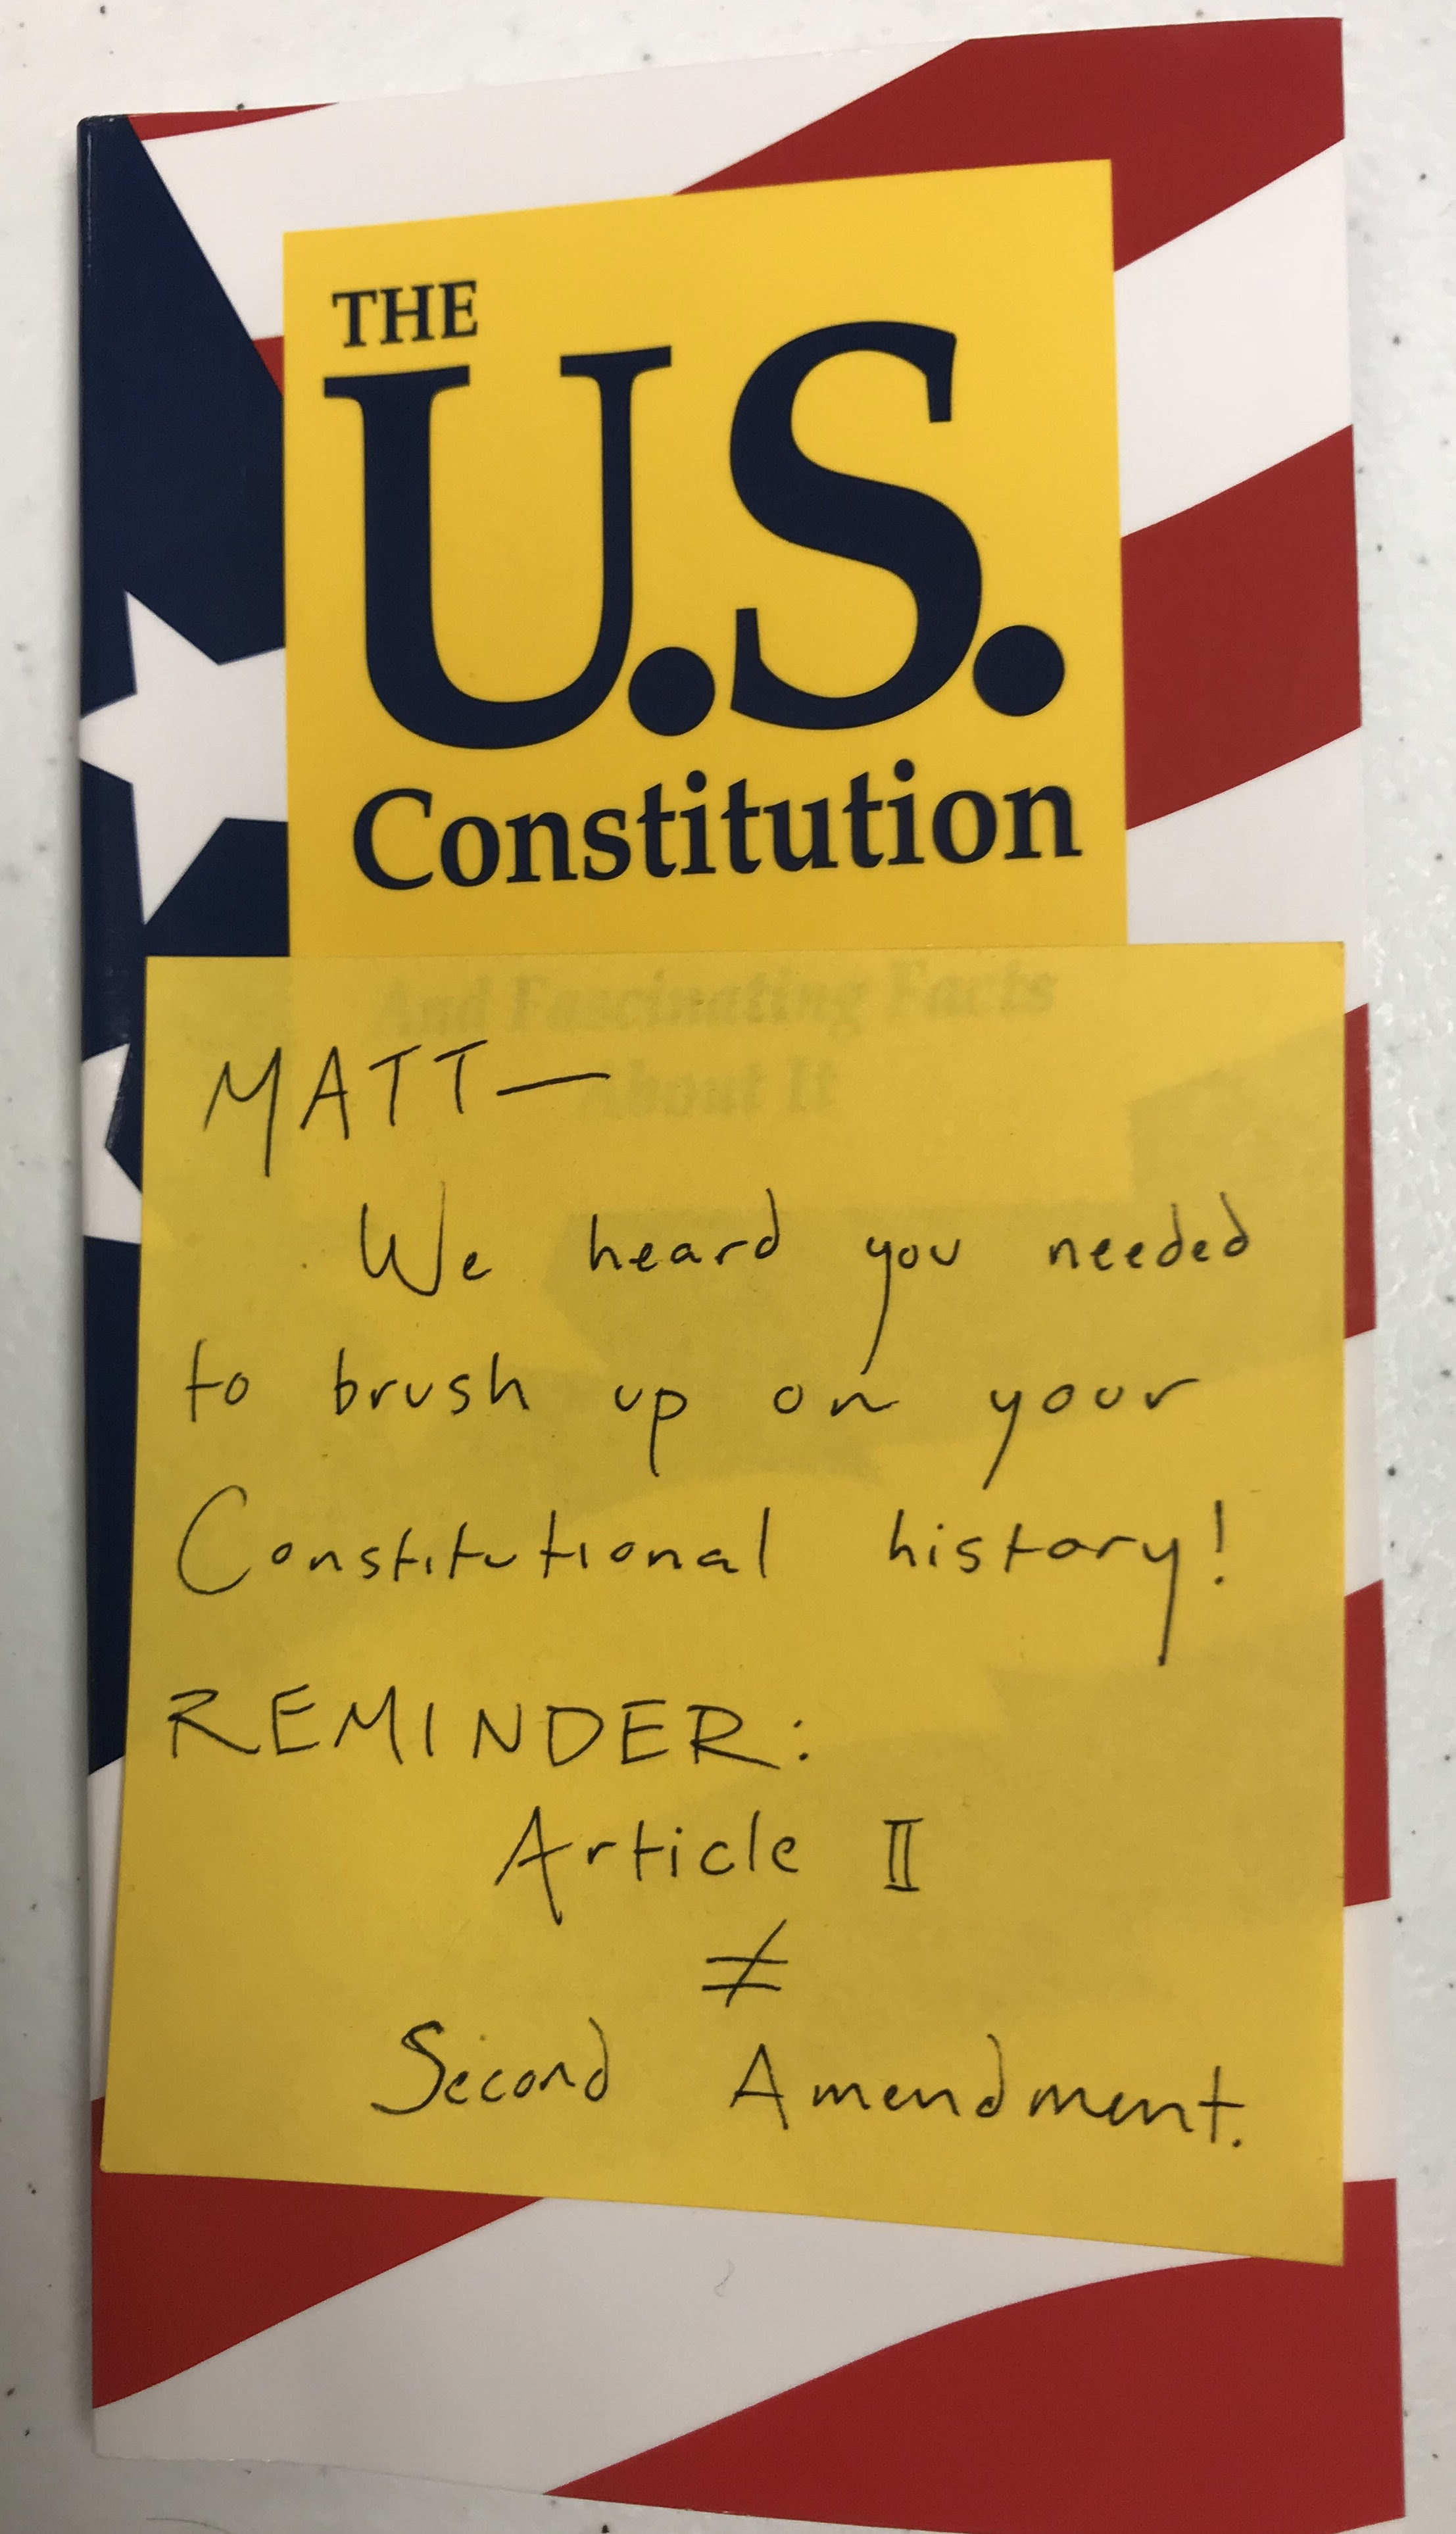 THE
U.S.
Constitution
And Fascinating Facts
About It
MATT—
We heard you needed
to brush up on your
Constitutional history!
REMINDER:
Article II
≠
Second Amendment.